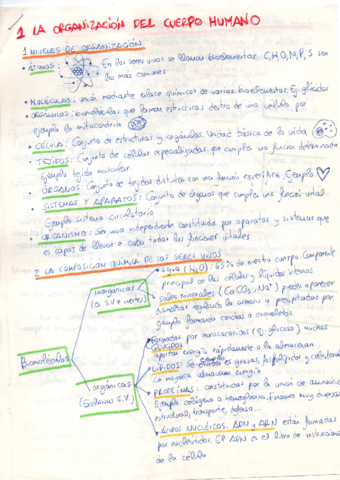 1 LA ORGANIZACIÓN DEL CUERPO HUMANO
1 NIVELES DE ORGANIZACIÓN
• ÁTOMOS: En los seres vivos se llaman bioelementos. C,H,O,N,P,S son
los más comunes
• MOLÉCULAS: unión mediante enlace químicos de varios bioelementos. Ej: glúcidos
• ORGÁNULOS: biomoléculas que forman estructuras dentro de una célula por
ejemplo la mitocondria
• CÉLULA: Conjunto de estructuras y orgánulos. Unidad básica de la vida
• TEJIDOS: Conjunto de células especializadas que cumplen una función determinada
Ejemplo tejido muscular.
• ÓRGANOS: Conjunto de tejidos distintos con una función específica. Ejemplo
• SISTEMAS Y APARATOS: Conjunto de órganos que cumplen una función vital.
Ejemplo sistema circulatorio
• ORGANISMO: Ser vivo independiente constituido por aparatos y sistemas que
es capaz de llevar a cabo todas las funciones vitales
2 LA COMPOSICIÓN QUÍMICA DE LOS SERES VIVOS
agua (H₂O): 65% de nuestro cuerpo. Componente
principal de las células y líquidos internos
inorgánicas
(a S.V e inertes)
sales minerales (CaCO₃, Na⁺) puede aparecer
disueltas regulan la osmosis o precipitados por
ejemplo formando conchas o esqueletos
Biomoléculas
Formados por monosacáridos (Ej: glucosa)
GLÚCIDOS
aportan energía rápidamente o la almacenan
LÍPIDOS: grasas, fosfolípidos y colesterol
La mayoría almacena energía
orgánicas
(Exclusivas S.V.)
PROTEÍNAS: constituidas por la unión de
Ejemplo colágeno o hemoglobina. Funciones muy diversas
estructural, transporte, defensa...
ÁCIDOS NUCLEICOS. ADN y ARN están formadas
por nucleótidos. El ADN es el libro de instrucciones
de la célula